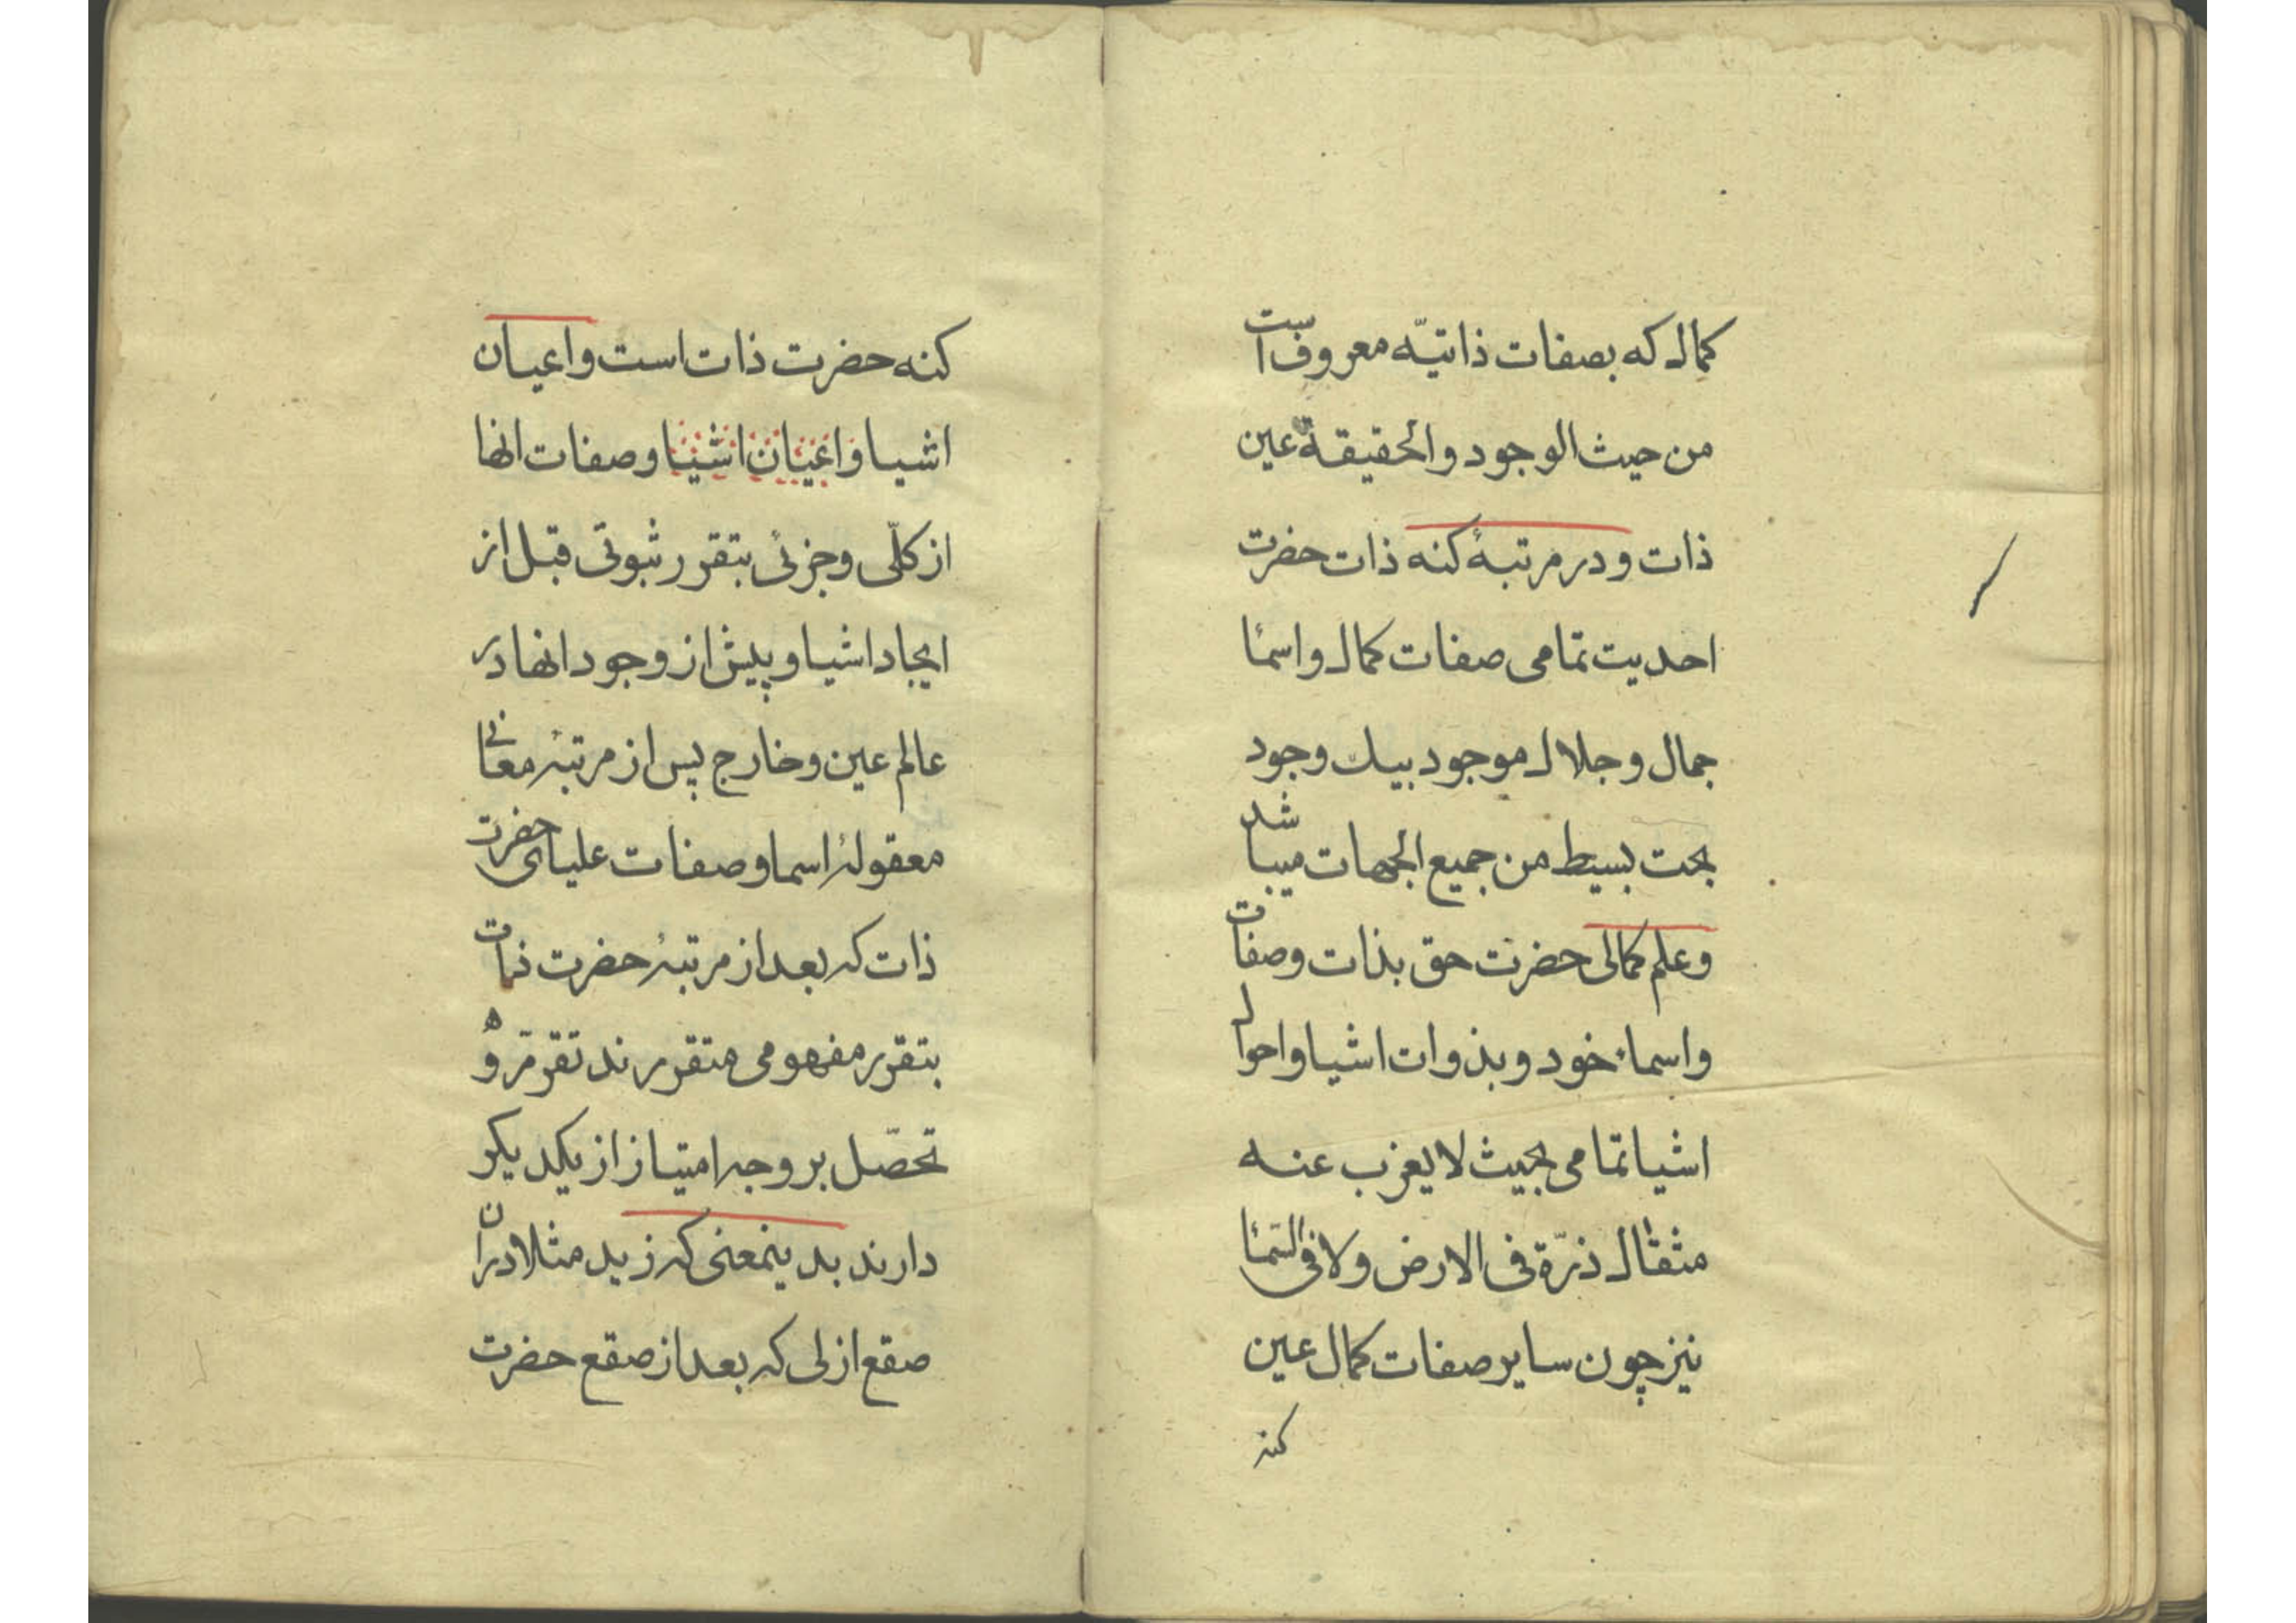 کمال که بصفات ذاتیّه معروف است
من حیث الوجود والحقیقة عین
ذات و در مرتبهٔ کنه ذات حضرت
احدیت تمامی صفات کمال و اسمآ
جمال و جلال موجود بیک وجود
بحت بسیط من جمیع الجهات میباشد
و علم کمالی حضرت حق بذات و صفات
و اسماء خود و بذوات اشیا و احوال
اشیا تمامی بحیث لا یعزب عنه
مثقال ذرّة فی الارض ولا فی السّمآ
نیز چون سایر صفات کمال عین
کنه
کنه حضرت ذات است و اعیان
اشیا و اعیان اشیا و صفات انها
از کلّی و جزئی بتقرر ثبوتی قبل از
ایجاد اشیا و پیش از وجود انها در
عالم عین و خارج پس از مرتبهٔ معانی
معقولهٔ اسما و صفات علیای حضرت
ذات که بعد از مرتبهٔ حضرت ذات
بتقرر مفهومی متقررند تقرره و
تحصّل بر وجه امتیاز از یکدیکر
دارند بدینمعنی که زید مثلا دران
صقع ازلی که بعد از صقع حضرت